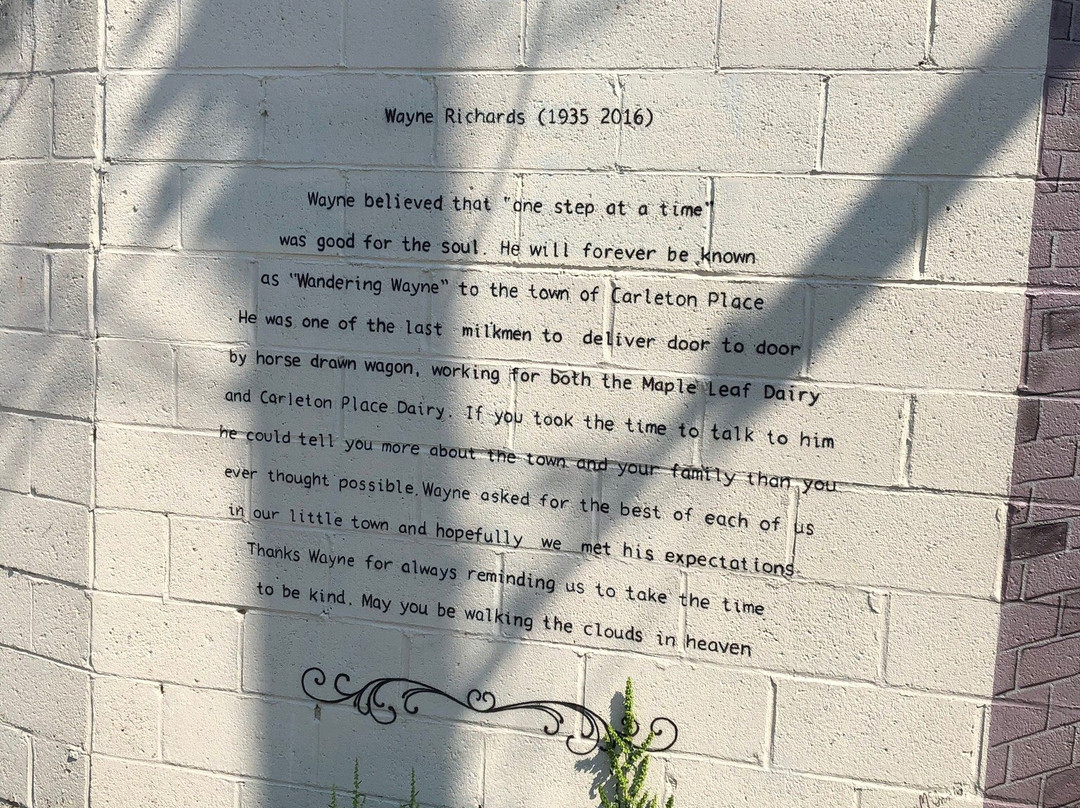 Wayne Richards (1935 2016)
Wayne believed that "one step at a time"
was good for the soul. He will forever be known
as "Wandering Wayne" to the town of Carleton Place
He was one of the last milkmen to deliver door to door
by horse drawn wagon, working for both the Maple Leaf Dairy
and Carleton Place Dairy. If you took the time to talk to him
he could tell you more about the town and your family than you
ever thought possible. Wayne asked for the best of each of us
in our little town and hopefully we met his expectations.
Thanks Wayne for always reminding us to take the time
to be kind. May you be walking the clouds in heaven